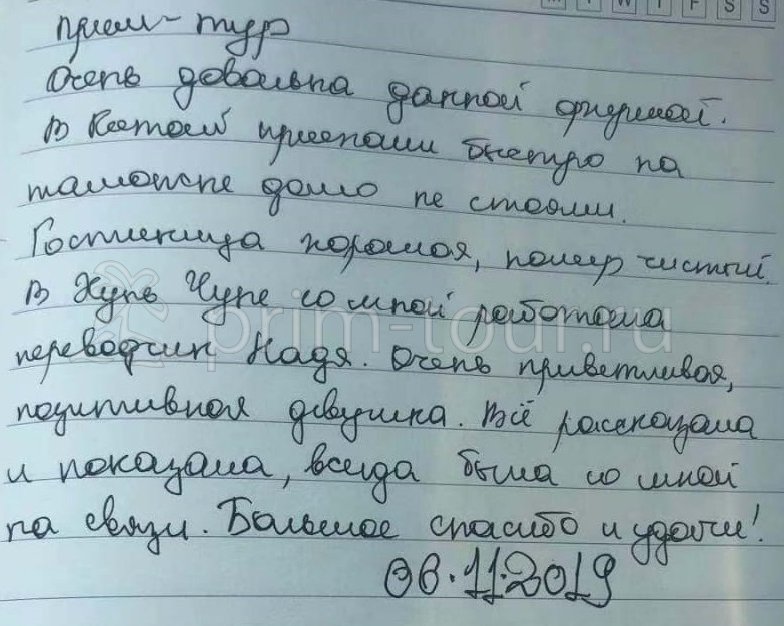 M T W T F S S
прим-тур
Очень довольна данной фирмой.
В Китай приехали быстро на
таможне долго не стояли.
Гостиница хорошая, номер чистый.
В Хунь Чуне со мной работала
переводчик Надя. Очень приветливая,
позитивная девушка. Всё рассказала
и показала, всегда была со мной
на связи. Большое спасибо и удачи!
06.11.2019
prim-tour.ru